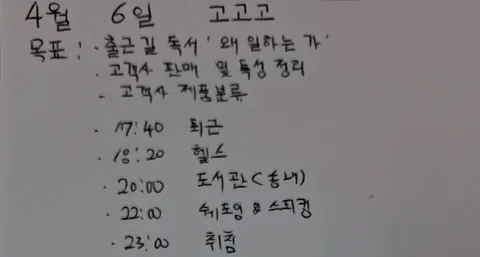 4월 6일 고고고
목표 : · 출근길 독서 '왜 일하는가'
· 고객사 판매 및 특성 정리
- 고객사 제품분류
· 17:40 퇴근
· 18:20 헬스
· 20:00 도서관(송내)
· 22:00 쉐도잉 & 스피킹
· 23:00 취침